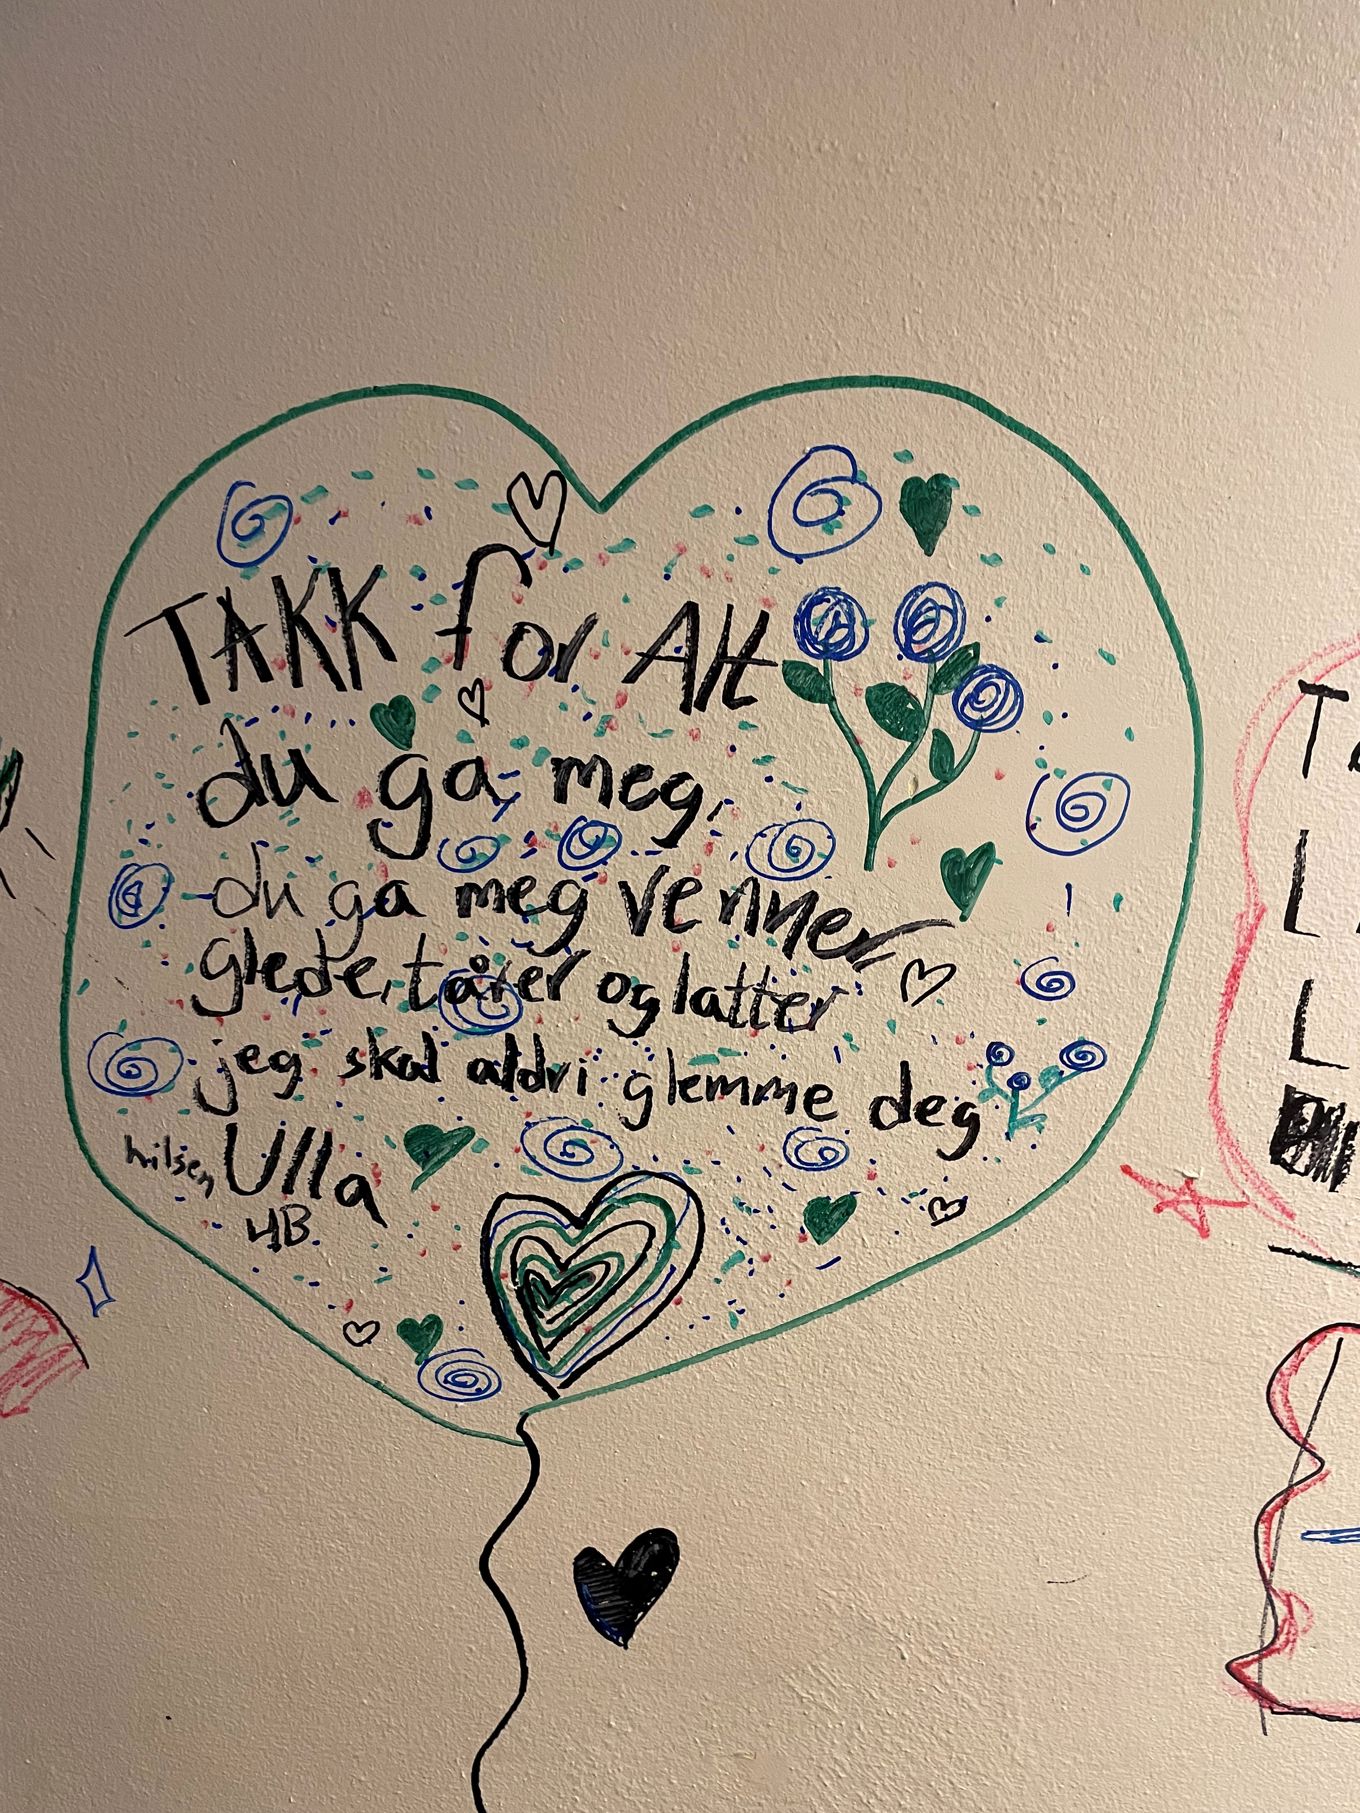 TAKK for Alt
du ga meg,
du ga meg venner
glede, tårer og latter
jeg skal aldri glemme deg
hilsen Ulla
4B.
T
L
L